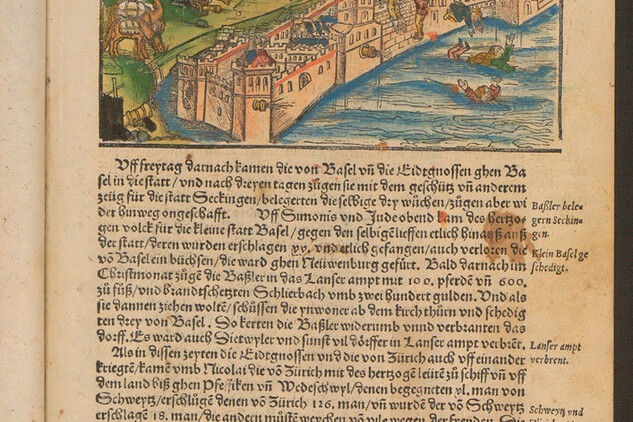 Vff freytag darnach kamen die von Basel vñ die Eidtgnossen ghen Ba
sel in die statt / vnd nach dreyen tagen zügen sie mit dem geschütz vñ anderem
zeüg für die statt Seckingen / belegerten die selbige dry wüchen / zügen aber wi
der hinweg ongeschafft. Vff Simonis vnd Jude obend kam des hertzo-
gen volck für die kleine statt Basel / gegen den selbigē lieffen etlich hinauß auß
der statt / deren wurden erschlagen xv. vnd etlich gefangen / auch verloren die
vō Basel ein büchsen / die ward ghen Neüwenburg gefürt. Bald darnach im
Christmonat zügē die Baßler in das Lanser ampt mit 100. pferdē vñ 600.
zů fůß / vnd brandtschetzten Schlierbach vmb zwei hundert gulden. Vnd als
sie dannen ziehen woltē / schüssen die ynwoner ab dem kirch thürn vnd schedig
ten drey von Basel. So kerten die Baßler widerumb vnnd verbranten das
dorff. Es ward auch Sietwyler vnd sunst vil dörffer in Lanser ampt verbrēt.
Als in dissen zeyten die Eidtgnossen vnd die von Zürich auch vff einander
kriegtē / kamē vmb Nicolai die vō Zürich mit des hertzogē leütē zů schiff vñ vff
dem land biß ghen Pfeffiken vñ Wedeschwyl / denen begegneten yl. man von
Schweytz / erschlügē denen vō Zürich 126. man / vñ wurdē der vō Schweytz
erschlagē 18. man / die andern můstē weychen vō vile wegen der fynden. Die
Baßler bele-
gern Seckin-
gen.
Klein Basel ge
schedigt.
Lanser ampt
verbrent.
Schweytz vnd